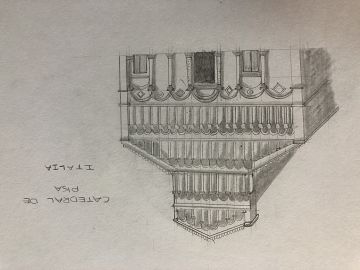 CATEDRAL DE
PISA
ITALIA